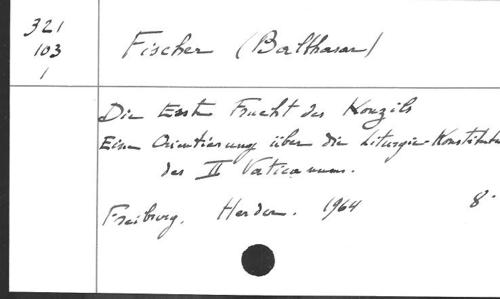 321
103
1
Fischer (Balthasar)
Die Erste Frucht des Konzils
Eine Orientierung über die Liturgie-Konstitution
des II Vaticanums.
Freiburg, Herder. 1964 8°